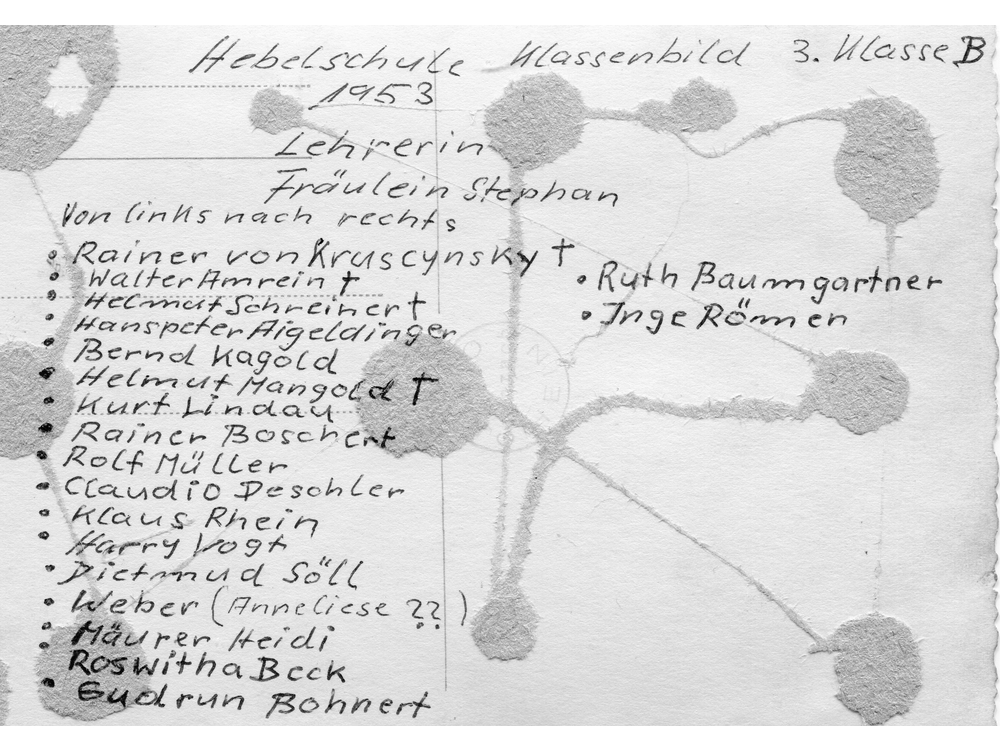 Hebelschule Klassenbild 3. Klasse B
1953
Lehrerin
Fräulein Stephan
Von links nach rechts
• Rainer von Kruscynsky †
• Walter Amrein †
• Helmut Schreiner †
• Hanspeter Aigeldinger
• Bernd Kagold
• Helmut Mangold †
• Kurt Lindau
• Rainer Boschert
• Rolf Müller
• Claudio Deschler
• Klaus Rhein
• Harry Vogt
• Dietmud Söll
• Weber (Anneliese ??)
• Mäurer Heidi
• Roswitha Beck
• Gudrun Bohnert
• Ruth Baumgartner
• Inge Römen